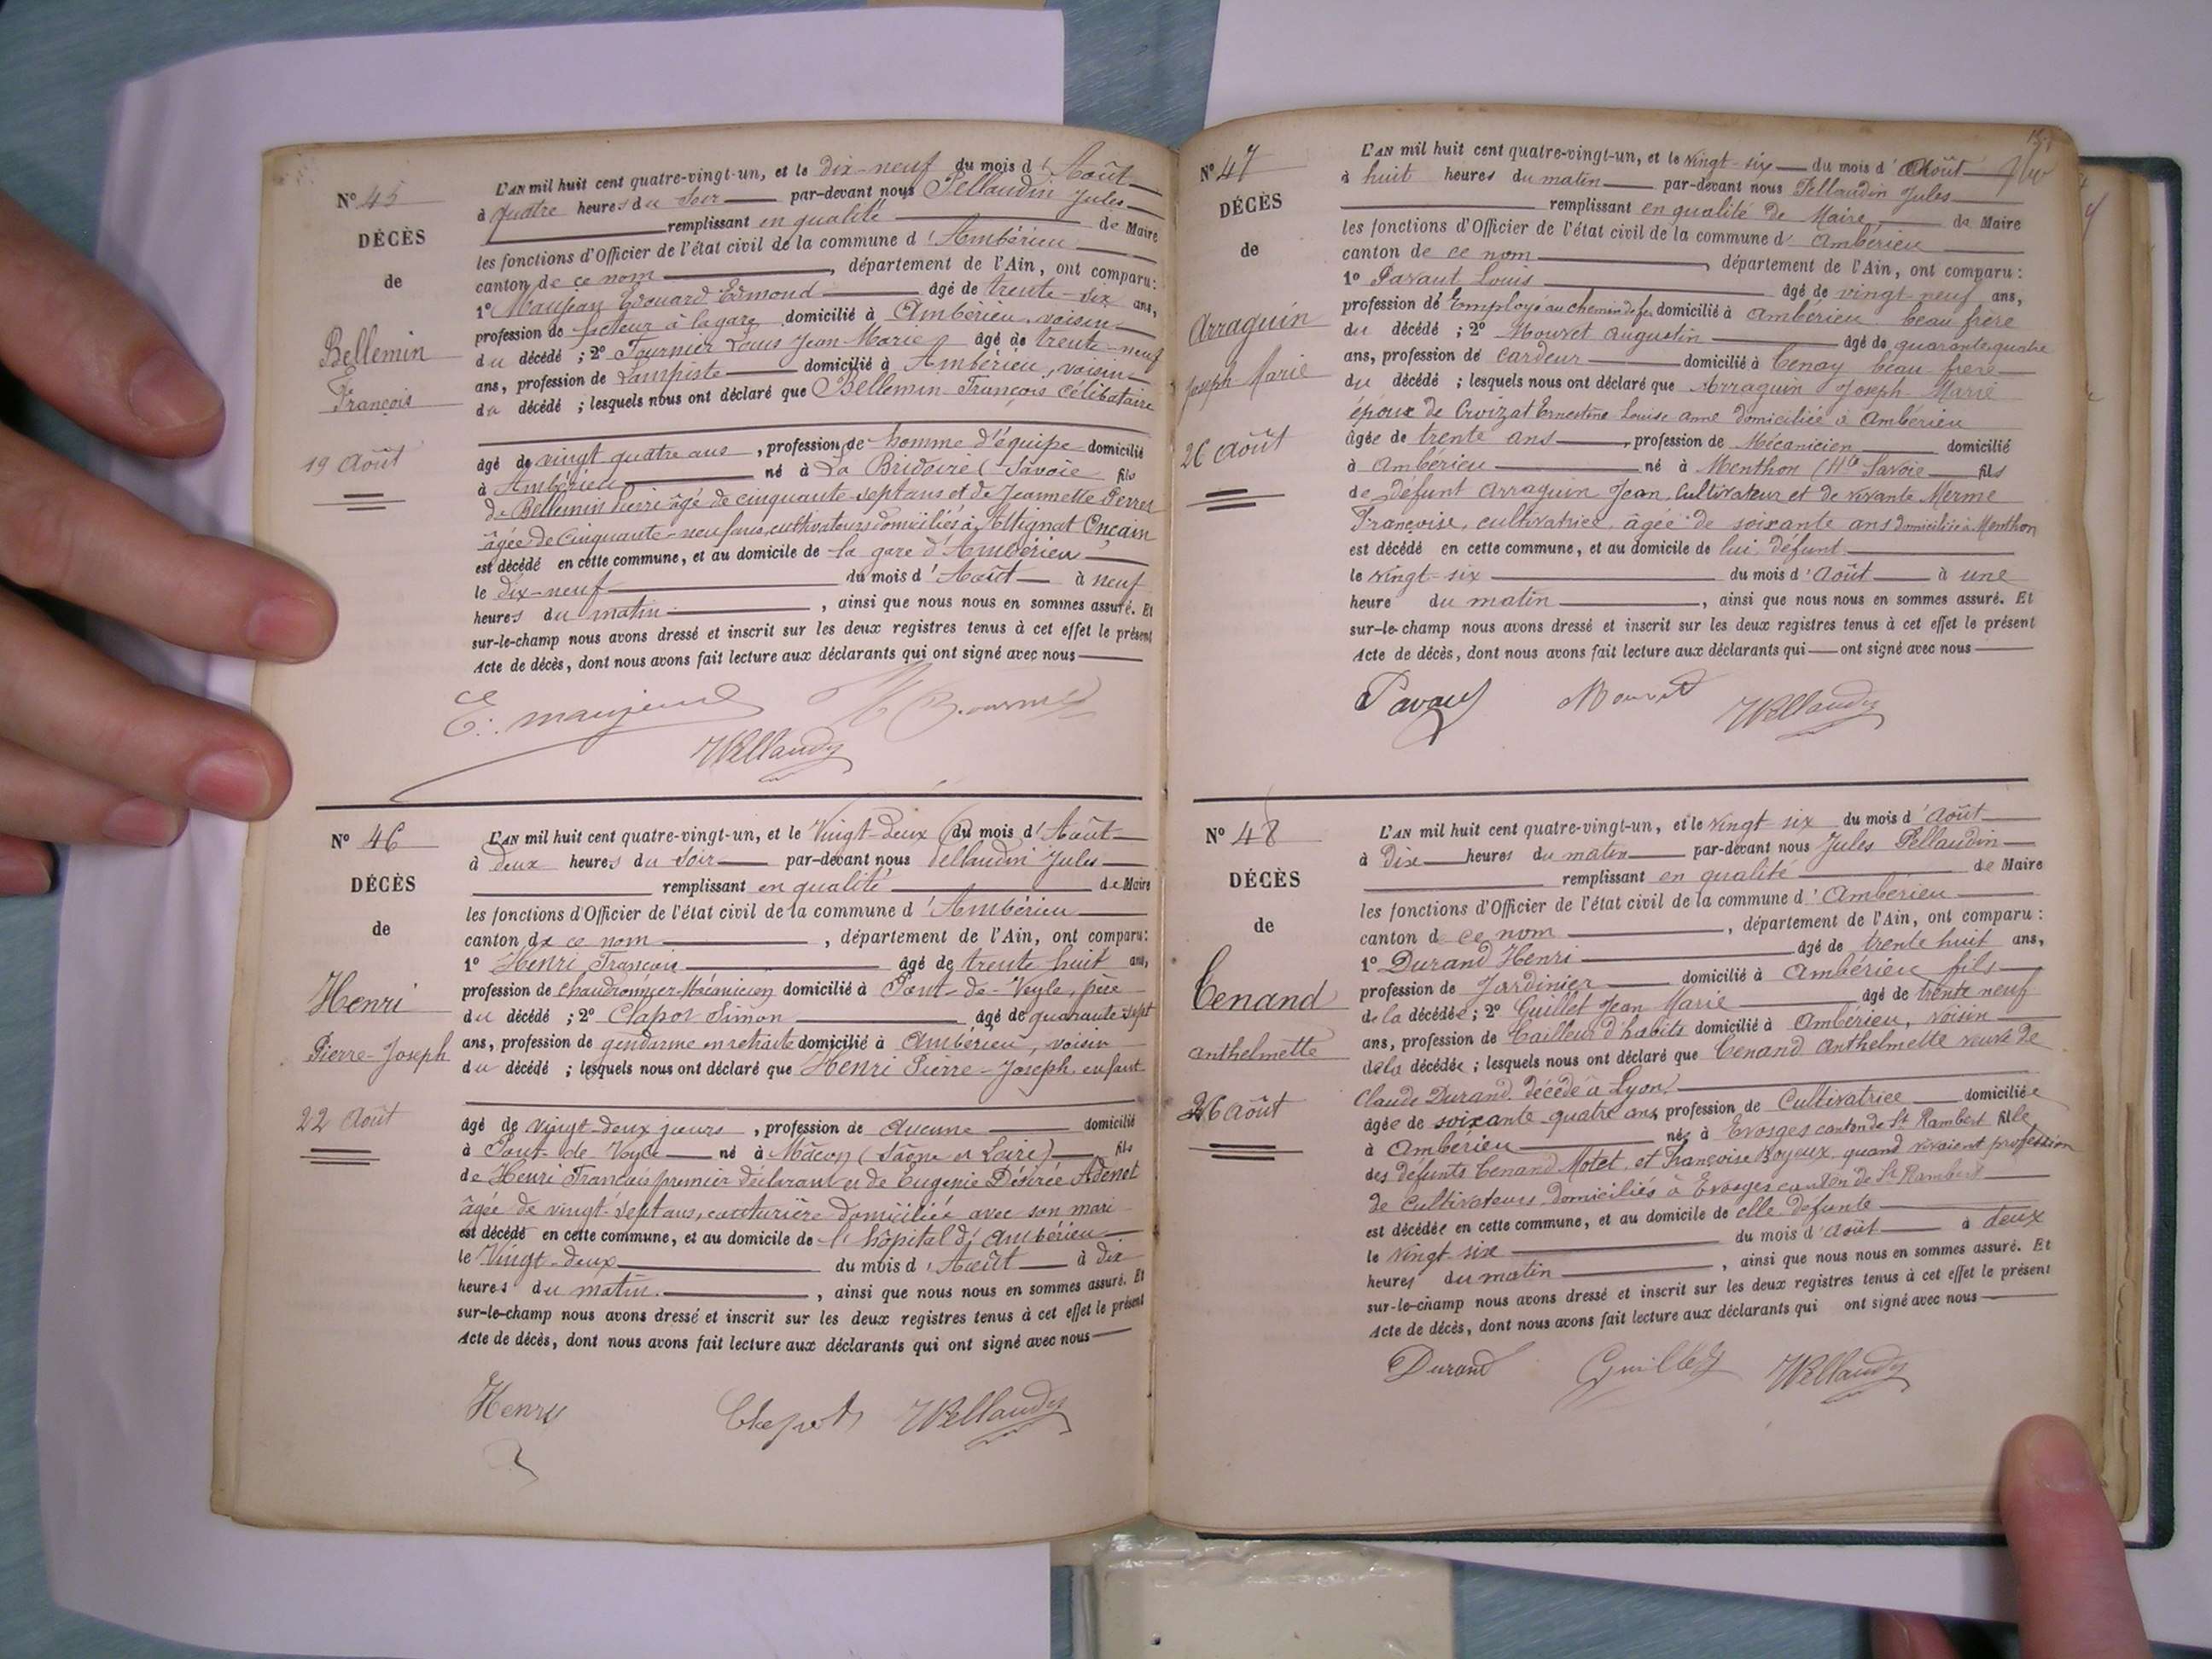 N° 45
DÉCÈS
de
Bellemin
François
19 Août
L'AN mil huit cent quatre-vingt-un, et le dix-neuf du mois d'Août
à quatre heures du soir par-devant nous Pellaudin Jules
remplissant en qualité de Maire
les fonctions d'Officier de l'état civil de la commune d'Ambérieu
canton de ce nom, département de l'Ain, ont comparu:
1° Maujean Edouard Edmond âgé de trente-six ans,
profession de facteur à la gare domicilié à Ambérieu, voisin
du décédé ; 2° Fournier Louis Jean Marie âgé de trente-neuf
ans, profession de Lampiste domicilié à Ambérieu, voisin
du décédé ; lesquels nous ont déclaré que Bellemin François célibataire
âgé de vingt quatre ans, profession de homme d'équipe domicilié
à Ambérieu né à La Bridoire (Savoie fils
de Bellemin Pierre âgé de cinquante-sept ans et de Jeannette Perret
âgée de cinquante-neuf ans, cultivateurs domiciliés à Attignat Oncain
est décédé en cette commune, et au domicile de la gare d'Ambérieu
le dix-neuf du mois d'Août à neuf
heures du matin, ainsi que nous nous en sommes assuré. Et
sur-le-champ nous avons dressé et inscrit sur les deux registres tenus à cet effet le présent
Acte de décès, dont nous avons fait lecture aux déclarants qui ont signé avec nous
E. maujean
JPellaudin
N° 46
DÉCÈS
de
Henri
Pierre-Joseph
22 Août
L'AN mil huit cent quatre-vingt-un, et le Vingt-deux du mois d'Août
à deux heures du soir par-devant nous Pellaudin Jules
remplissant en qualité de Maire
les fonctions d'Officier de l'état civil de la commune d'Ambérieu
canton de ce nom, département de l'Ain, ont comparu:
1° Henri François âgé de trente huit ans,
profession de Chaudronnier-Mécanicien domicilié à Pont-de-Veyle, père
du décédé ; 2° Clapot Simon âgé de quarante-sept
ans, profession de gendarme en retraite domicilié à Ambérieu, voisin
du décédé ; lesquels nous ont déclaré que Henri Pierre-Joseph, enfant
âgé de vingt-deux jours, profession de aucune domicilié
à Pont-de-Veyle né à Mâcon (Saône et Loire) fils
de Henri François premier déclarant et de Eugénie Désirée Adenot
âgée de vingt-sept ans, couturière domiciliée avec son mari
est décédé en cette commune, et au domicile de l'hôpital d'Ambérieu
le Vingt-deux du mois d'Août à dix
heures du matin, ainsi que nous nous en sommes assuré. Et
sur-le-champ nous avons dressé et inscrit sur les deux registres tenus à cet effet le présent
Acte de décès, dont nous avons fait lecture aux déclarants qui ont signé avec nous
Henry Clapot JPellaudin
N° 47
DÉCÈS
de
Arraguin
Joseph Marie
26 Août
L'AN mil huit cent quatre-vingt-un, et le vingt-six du mois d'Août
à huit heures du matin par-devant nous Pellaudin Jules
remplissant en qualité de Maire, de Maire
les fonctions d'Officier de l'état civil de la commune d'Ambérieu
canton de ce nom, département de l'Ain, ont comparu:
1° Pavaut Louis âgé de vingt-neuf ans,
profession de Employé au chemin de fer domicilié à Ambérieu beau frère
du décédé ; 2° Mouret Augustin âgé de quarante quatre
ans, profession de cardeur domicilié à Tenay beau frère
du décédé ; lesquels nous ont déclaré que Arraguin Joseph-Marie
époux de Croizat Ernestine Louise Anne domiciliée à Ambérieu
âgée de trente ans, profession de Mécanicien domicilié
à Ambérieu né à Menthon (Hte Savoie fils
de défunt Arraguin Jean, Cultivateur et de vivante Merme
Françoise, cultivatrice, âgée de soixante ans domiciliée à Menthon
est décédé en cette commune, et au domicile de lui défunt
le vingt-six du mois d'Août à une
heure du matin, ainsi que nous nous en sommes assuré. Et
sur-le-champ nous avons dressé et inscrit sur les deux registres tenus à cet effet le présent
Acte de décès, dont nous avons fait lecture aux déclarants qui ont signé avec nous
Pavaut Mouret JPellaudin
N° 48
DÉCÈS
de
Tenand
Anthelmette
26 Août
L'AN mil huit cent quatre-vingt-un, et le vingt six du mois d'Août
à dix heures du matin par-devant nous Jules Pellaudin
remplissant en qualité de Maire
les fonctions d'Officier de l'état civil de la commune d'Ambérieu
canton de ce nom, département de l'Ain, ont comparu:
1° Durand Henri âgé de trente huit ans,
profession de Jardinier domicilié à Ambérieu fils
de la décédée ; 2° Guillet Jean Marie âgé de trente neuf
ans, profession de Tailleur d'habits domicilié à Ambérieu, voisin
de la décédée ; lesquels nous ont déclaré que Tenand Anthelmette veuve de
Claude Durand, décédé à Lyon
âgée de soixante quatre ans, profession de Cultivatrice domiciliée
à Ambérieu née à Evosges canton de St Rambert fille
des défunts Tenand Motet, et Françoise Boyeux quand vivaient profession
de cultivateurs domiciliés à Evosges canton de St Rambert
est décédée en cette commune, et au domicile de elle défunte
le vingt six du mois d'Août à deux
heures du matin, ainsi que nous nous en sommes assuré. Et
sur-le-champ nous avons dressé et inscrit sur les deux registres tenus à cet effet le présent
Acte de décès, dont nous avons fait lecture aux déclarants qui ont signé avec nous
Durand Guillet JPellaudin